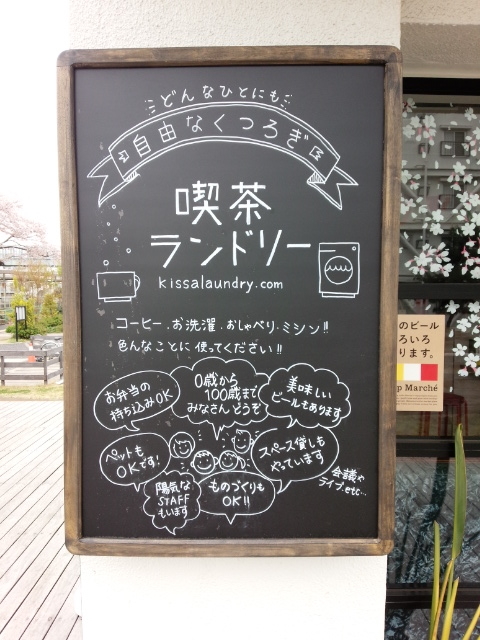 どんなひとにも
自由なくつろぎ
喫茶
ランドリー
kissalaundry.com
コーヒー・お洗濯・おしゃべり・ミシン!!
色んなことに使ってください!!
お弁当の
持ち込みOK
0歳から
100歳まで
みなさんどうぞ
美味しい
ビールもあります
ペットも
OKです!
スペース貸しも
やっています
会議や
ライブ.etc…
陽気な
STAFF
もいます
ものづくりも
OK!!
のビール
ろいろ
ります。
p Marché